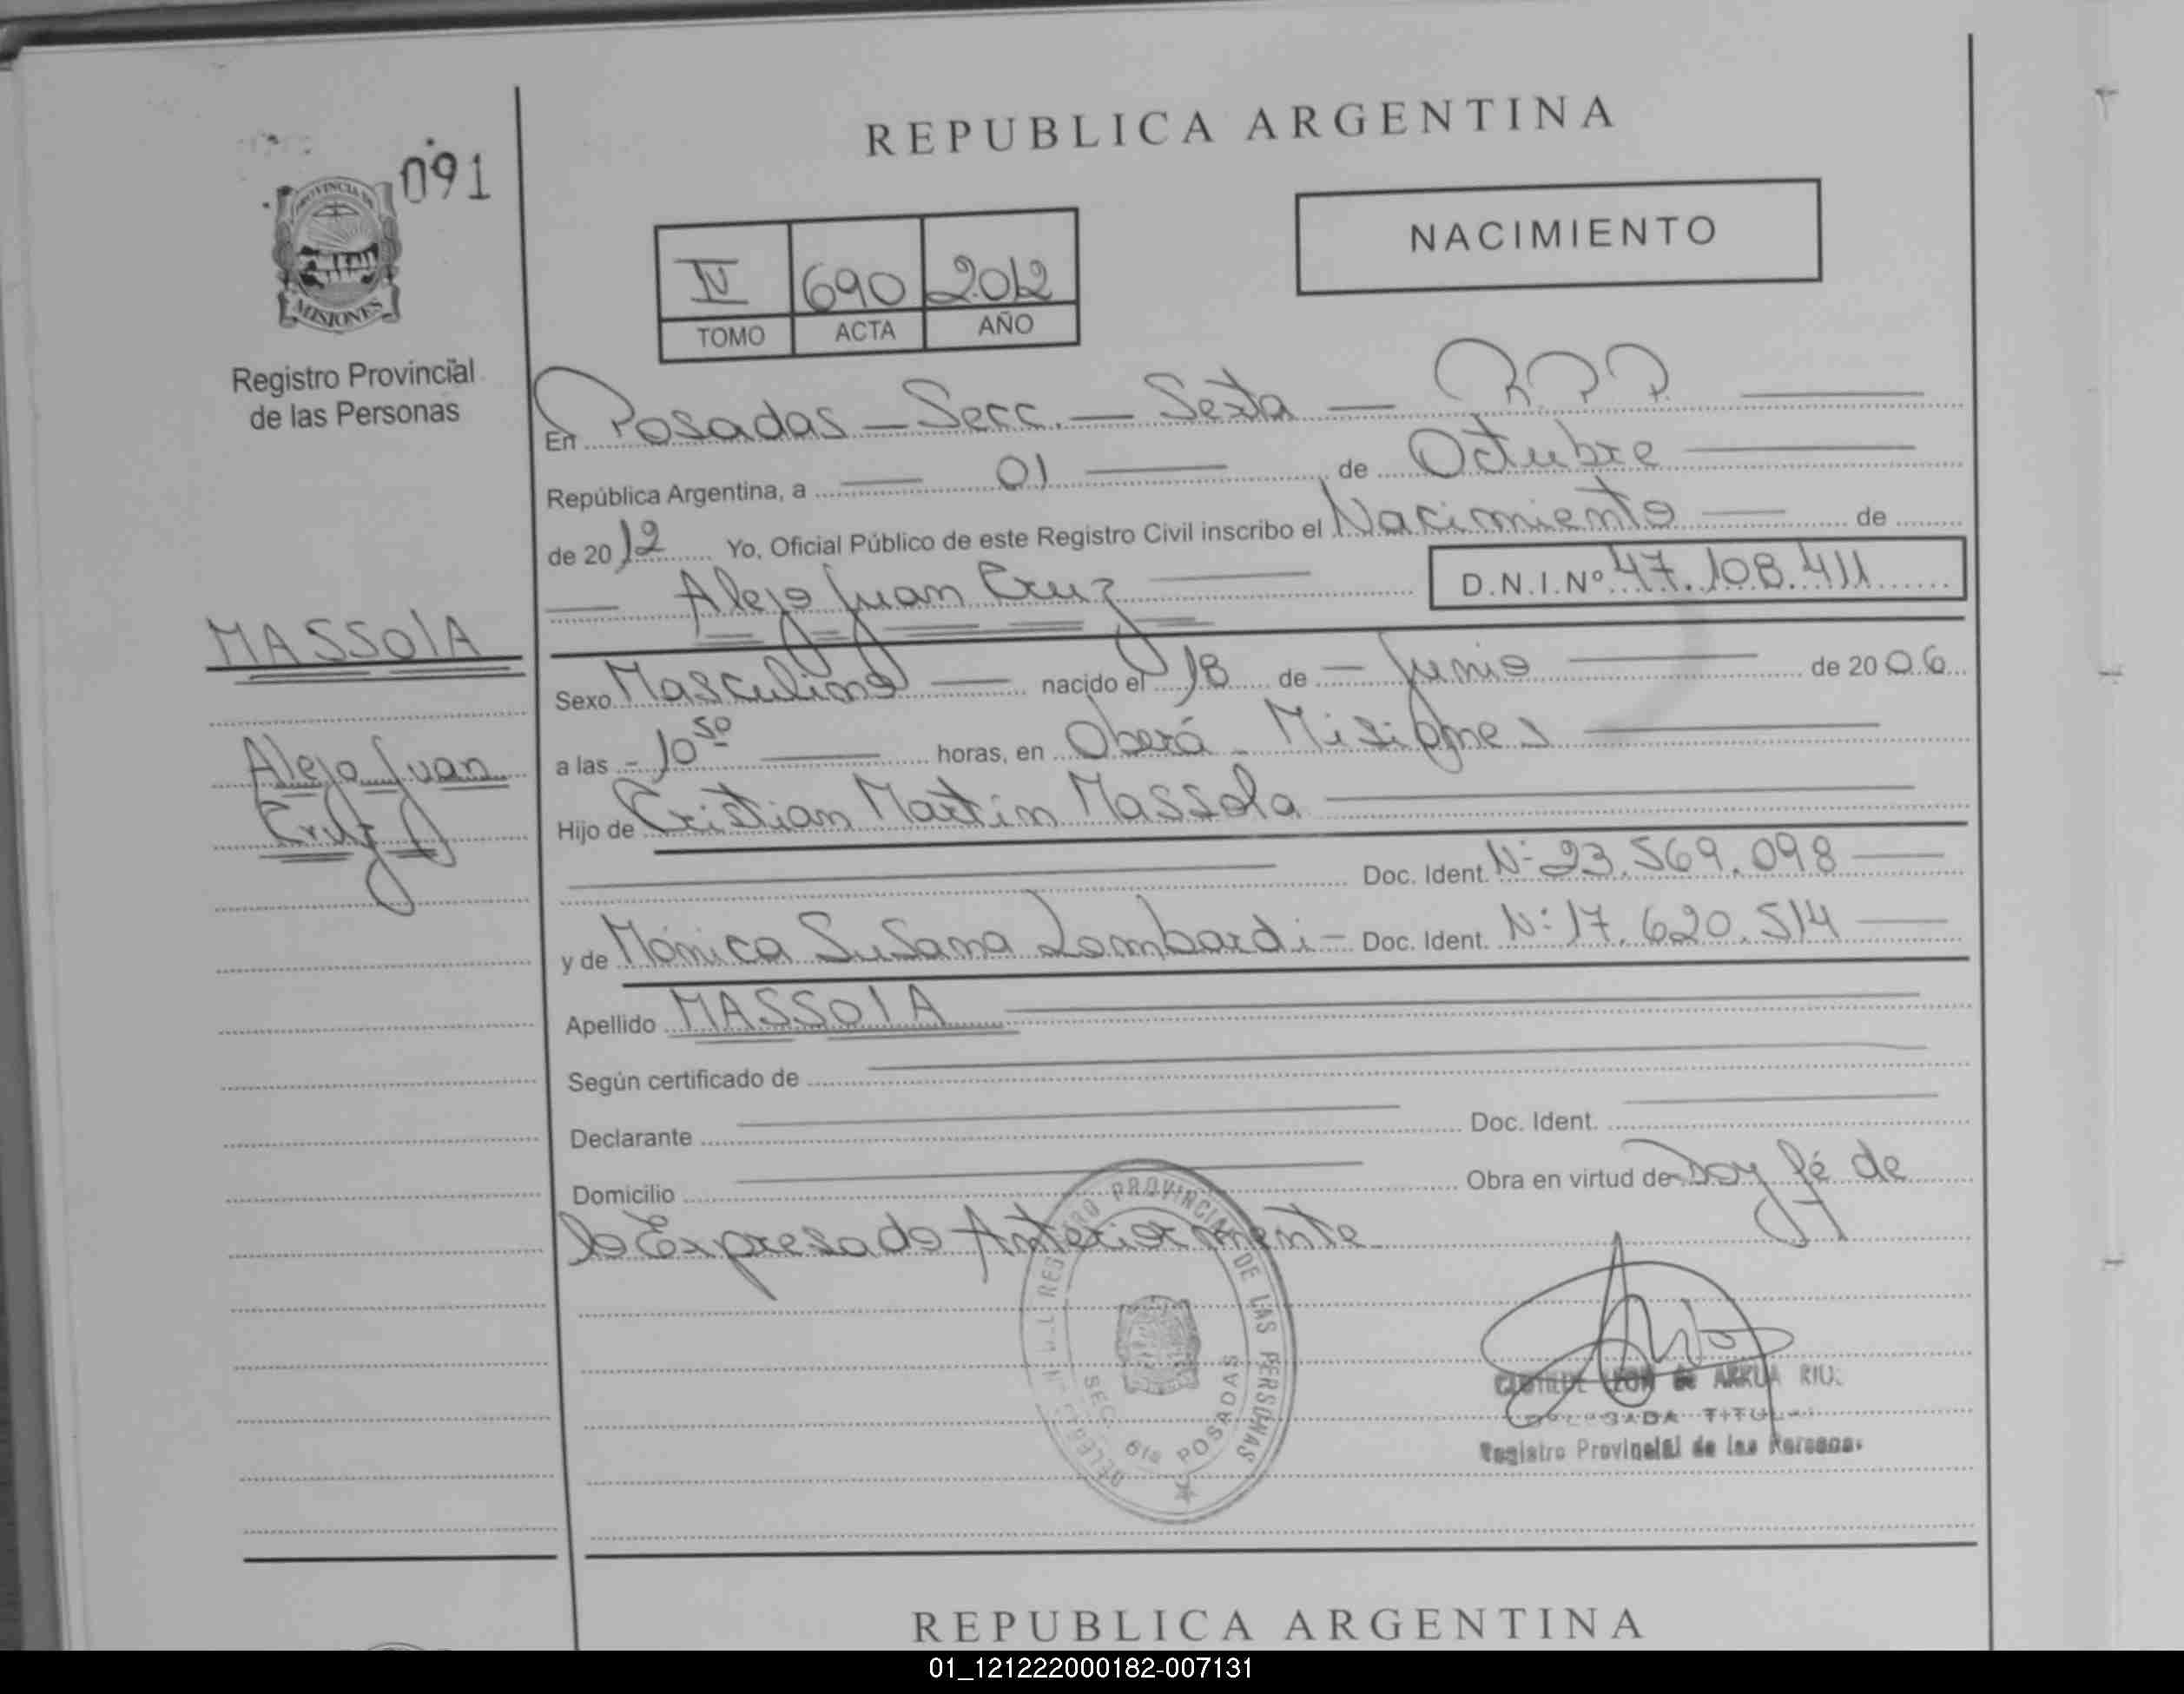 REPUBLICA ARGENTINA
091
PROVINCIA DE
MISIONES
Registro Provincial
de las Personas
NACIMIENTO
IV 690 2012
TOMO ACTA AÑO
En Posadas - Secc. - Sexta - R.P.P.
República Argentina, a 01 de Octubre
de 2012 Yo, Oficial Público de este Registro Civil inscribo el Nacimiento de
Alejo Juan Cruz D.N.I.Nº 47.108.411
MASSOlA
Alejo Juan
Cruz
Sexo Masculino nacido el 18 de Junio de 2006
a las - 10 50 horas, en Oberá - Misiones
Hijo de Cristian Martin Massola
Doc. Ident. N- 23.569.098
y de Mónica Susana Lombardi - Doc. Ident. N: 17.620.514
Apellido MASSOlA
Según certificado de
Declarante Doc. Ident.
Domicilio Obra en virtud de Doy fé de
lo Expresado Anteriormente
REGISTRO PROVINCIAL DE LAS PERSONAS
SEC. 6ta POSADAS
LEON de ARRUA
TITULAR
Registro Provincial de las Personas
REPUBLICA ARGENTINA
01_121222000182-007131